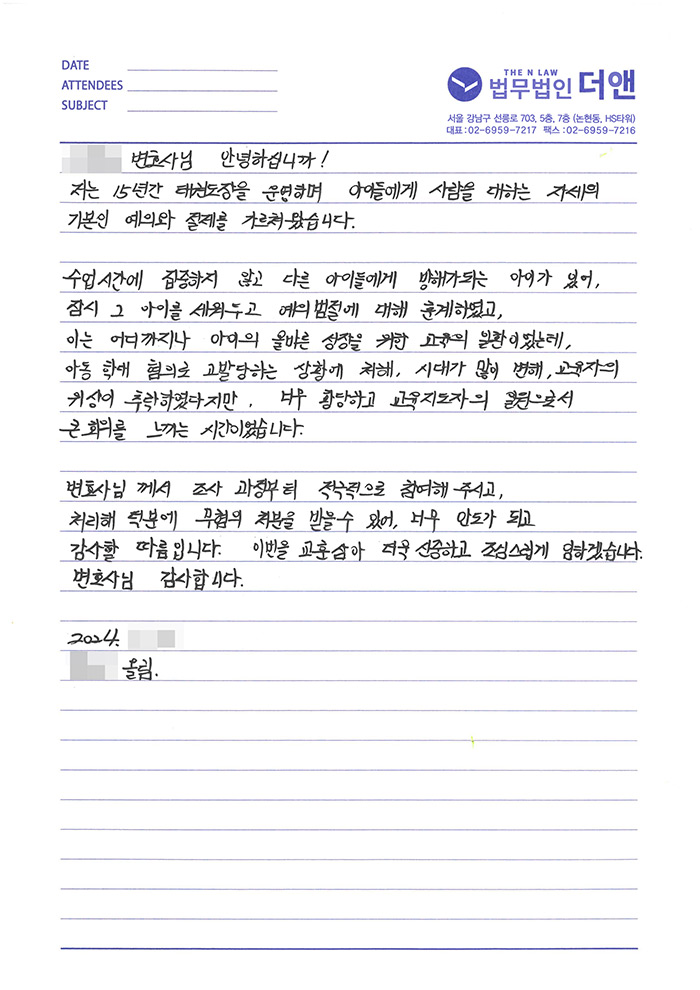 DATE
ATTENDEES
SUBJECT
THE N LAW
법무법인 더앤
서울 강남구 선릉로 703, 5층, 7층 (논현동, HS타워)
대표 : 02-6959-7217 팩스 : 02-6959-7216
변호사님 안녕하십니까!
저는 15년간 태권도장을 운영하며 아이들에게 사람을 대하는 자세의
기본인 예의와 절제를 가르쳐왔습니다.
수업시간에 집중하지 않고 다른 아이들에게 방해가되는 아이가 있어,
잠시 그 아이를 세워두고 예의범절에 대해 훈계하였고,
이는 어디까지나 아이의 올바른 성장을 위한 교육의 일환이었는데,
아동 학대 혐의로 고발당하는 상황에 처해, 시대가 많이 변해, 교육자의
위상이 추락하였다지만, 너무 황당하고 교육지도자의 일원으로서
큰 회의를 느끼는 시간이었습니다.
변호사님 께서 조사 과정부터 적극적으로 참여해 주시고,
처리해 덕분에 무혐의 처분을 받을수 있어, 너무 안도가 되고
감사할 따름입니다. 이번을 교훈삼아 더욱 신중하고 조심스럽게 임하겠습니다.
변호사님 감사합니다.
2024.
올림.